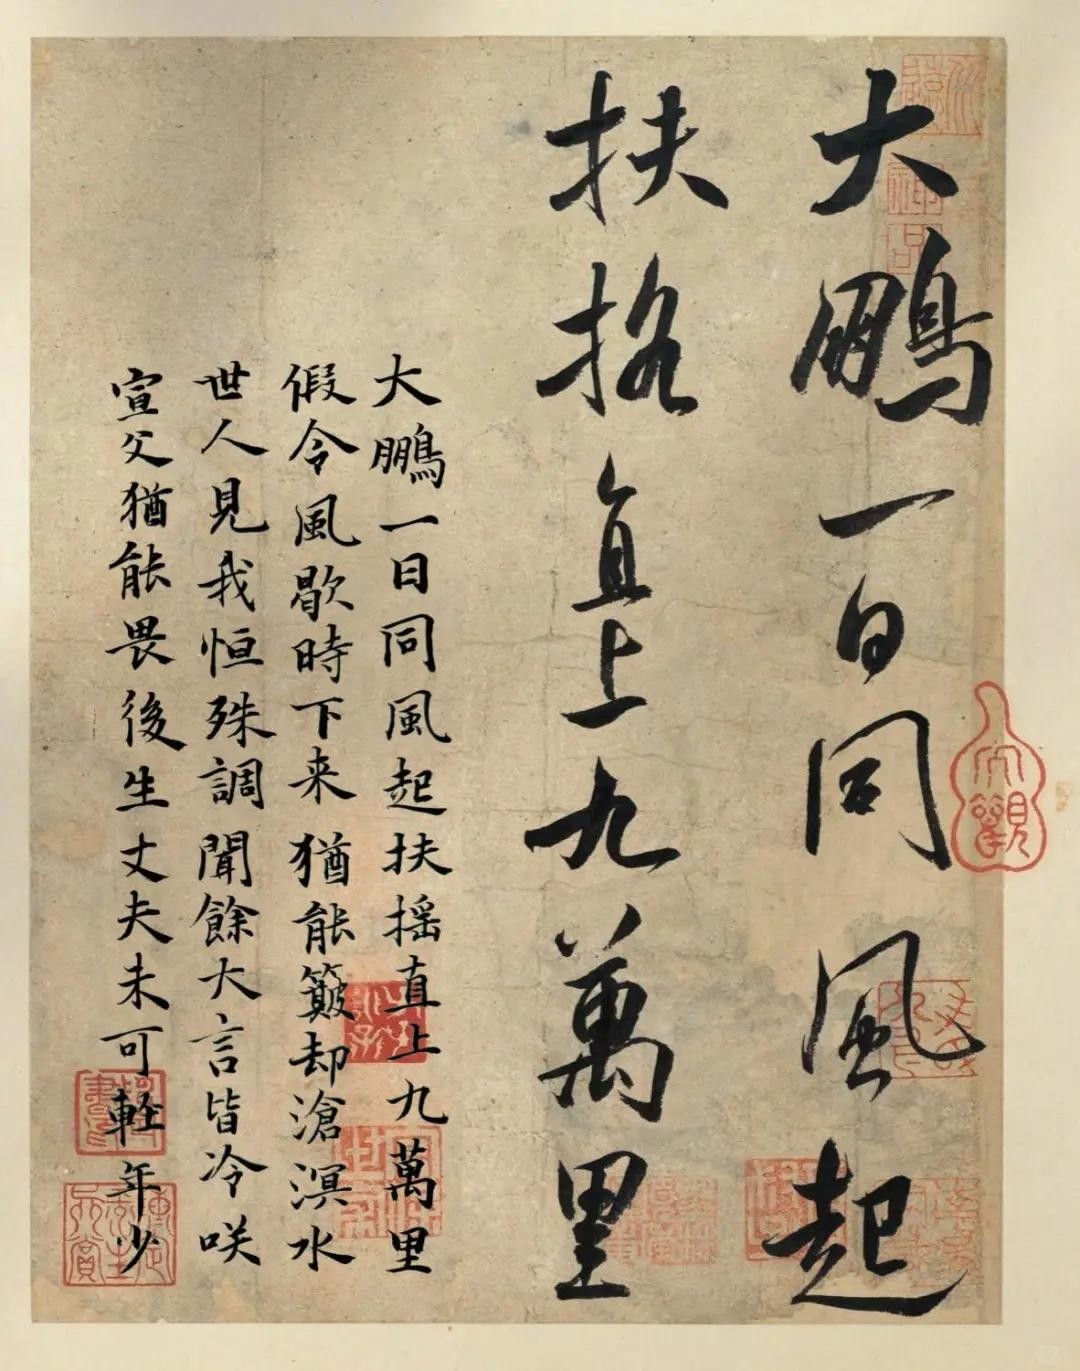 大鵬一日同風起
扶摇直上九萬里
大鵬一日同風起扶摇直上九萬里
假令風歇時下来猶能簸却滄溟水
世人見我恒殊調聞餘大言皆冷咲
宣父猶能畏後生丈夫未可軽年少